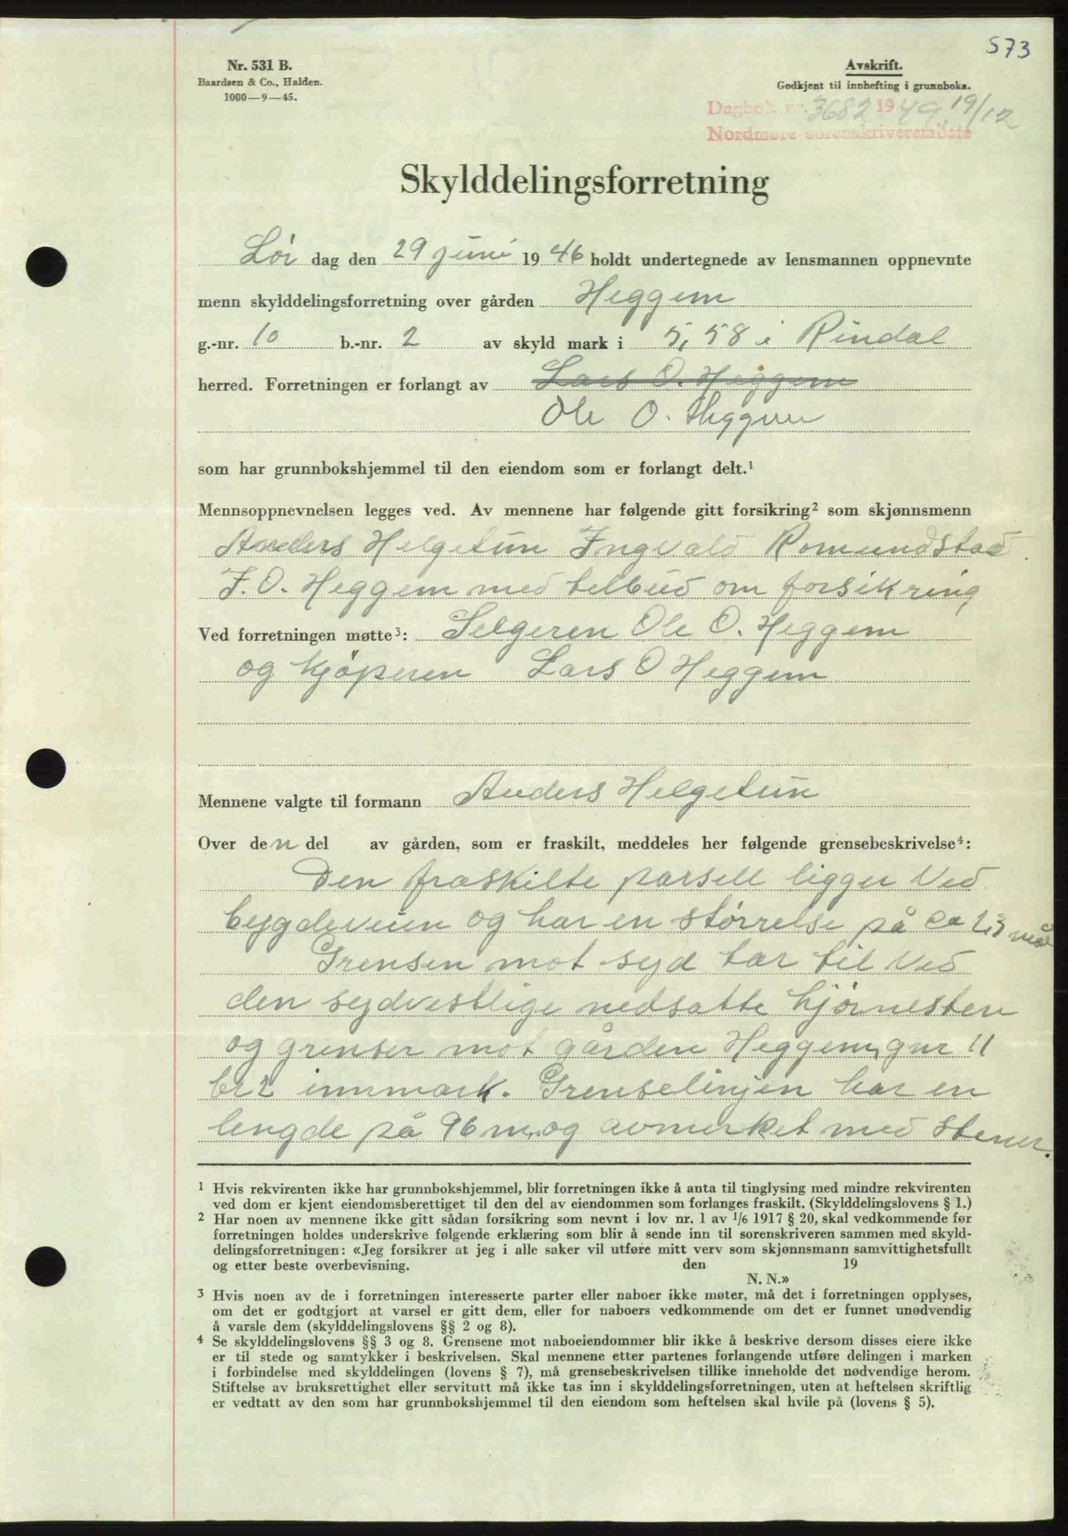 573
Nr. 531 B.
Baardsen & Co., Halden.
1000—9—45.
Avskrift.
Godkjent til innhefting i grunnboka.
Dagbok nr. 3682 1949, 19/12
Nordmøre sorenskriverembete
Skylddelingsforretning
Lør dag den 29 juni 1946 holdt undertegnede av lensmannen oppnevnte
menn skylddelingsforretning over gården Heggem
g.-nr. 10 b.-nr. 2 av skyld mark i 5,58 i Rindal
herred. Forretningen er forlangt av Lars O. Heggem
Ole O. Heggem
som har grunnbokshjemmel til den eiendom som er forlangt delt.¹
Mennsoppnevnelsen legges ved. Av mennene har følgende gitt forsikring² som skjønnsmenn
Anders Helgetun Ingvald Romundstad.
J. O. Heggem med tilbud om forsikring
Ved forretningen møtte³: Selgeren Ole O. Heggem
og kjöperen Lars O Heggem
Mennene valgte til formann Anders Helgetun
Over den del av gården, som er fraskilt, meddeles her følgende grensebeskrivelse⁴:
Den fraskilte parsell ligger ved
bygdeveien og har en størrelse på ca 2,3 mål
Grensen mot syd tar til ved
den sydvestlige nedsatte hjørnesten
og grenser mot gården Heggem, gnr 11
br 2 innmark. Grenselinjen har en
lengde på 96 m, og avmerket med stener.
¹ Hvis rekvirenten ikke har grunnbokshjemmel, blir forretningen ikke å anta til tinglysing med mindre rekvirenten
ved dom er kjent eiendomsberettiget til den del av eiendommen som forlanges fraskilt. (Skylddelingslovens § 1.)
² Har noen av mennene ikke gitt sådan forsikring som nevnt i lov nr. 1 av 1/6 1917 § 20, skal vedkommende før
forretningen holdes underskrive følgende erklæring som blir å sende inn til sorenskriveren sammen med skyld-
delingsforretningen: «Jeg forsikrer at jeg i alle saker vil utføre mitt verv som skjønnsmann samvittighetsfullt
og etter beste overbevisning. den 19
N. N.»
³ Hvis noen av de i forretningen interesserte parter eller naboer ikke møter, må det i forretningen opplyses,
om det er godtgjort at varsel er gitt dem, eller for naboers vedkommende om det er funnet unødvendig
å varsle dem (skylddelingslovens §§ 2 og 8).
⁴ Se skylddelingslovens §§ 3 og 8. Grensene mot naboeiendommer blir ikke å beskrive dersom disses eiere ikke
er til stede og samtykker i beskrivelsen. Skal mennene etter partenes forlangende utføre delingen i marken
i forbindelse med skylddelingen (lovens § 7), må grensebeskrivelsen tillike inneholde det nødvendige herom.
Stiftelse av bruksrettighet eller servitutt må ikke tas inn i skylddelingsforretningen, uten at heftelsen skriftlig
er vedtatt av den som har grunnbokshjemmel til den eiendom som heftelsen skal hvile på (lovens § 5).